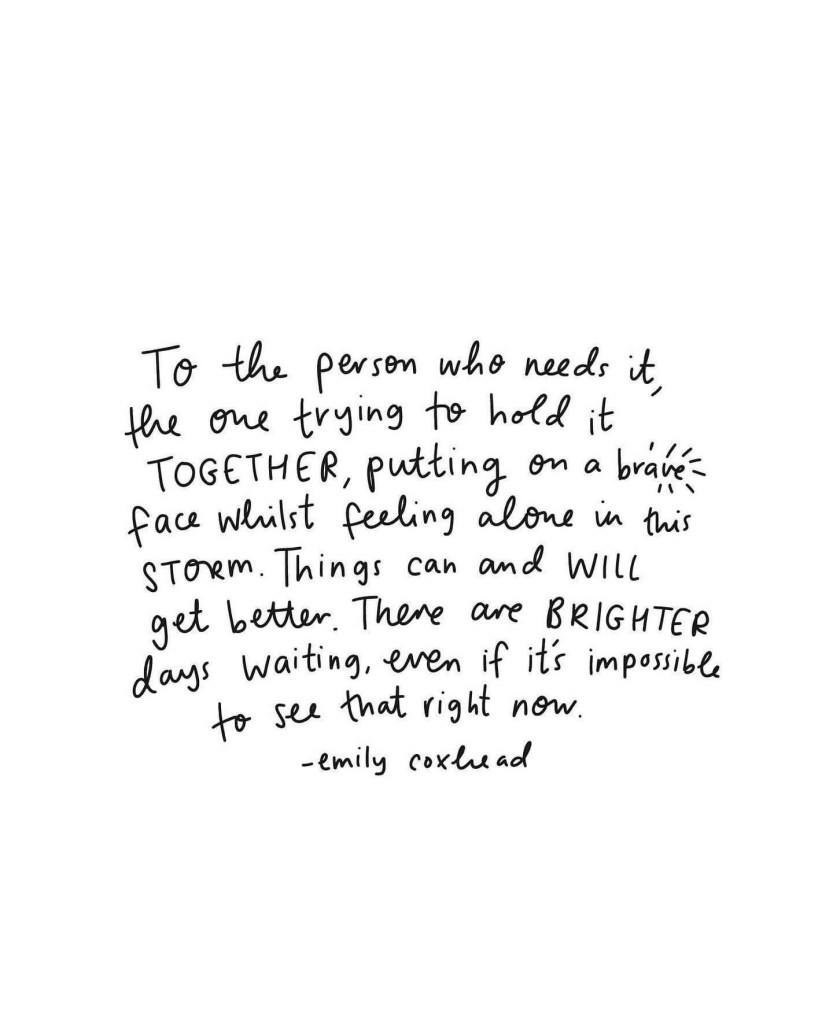 To the person who needs it,
the one trying to hold it
TOGETHER, putting on a brave
face whilst feeling alone in this
STORM. Things can and WILL
get better. There are BRIGHTER
days waiting, even if it's impossible
to see that right now.
-emily coxhead